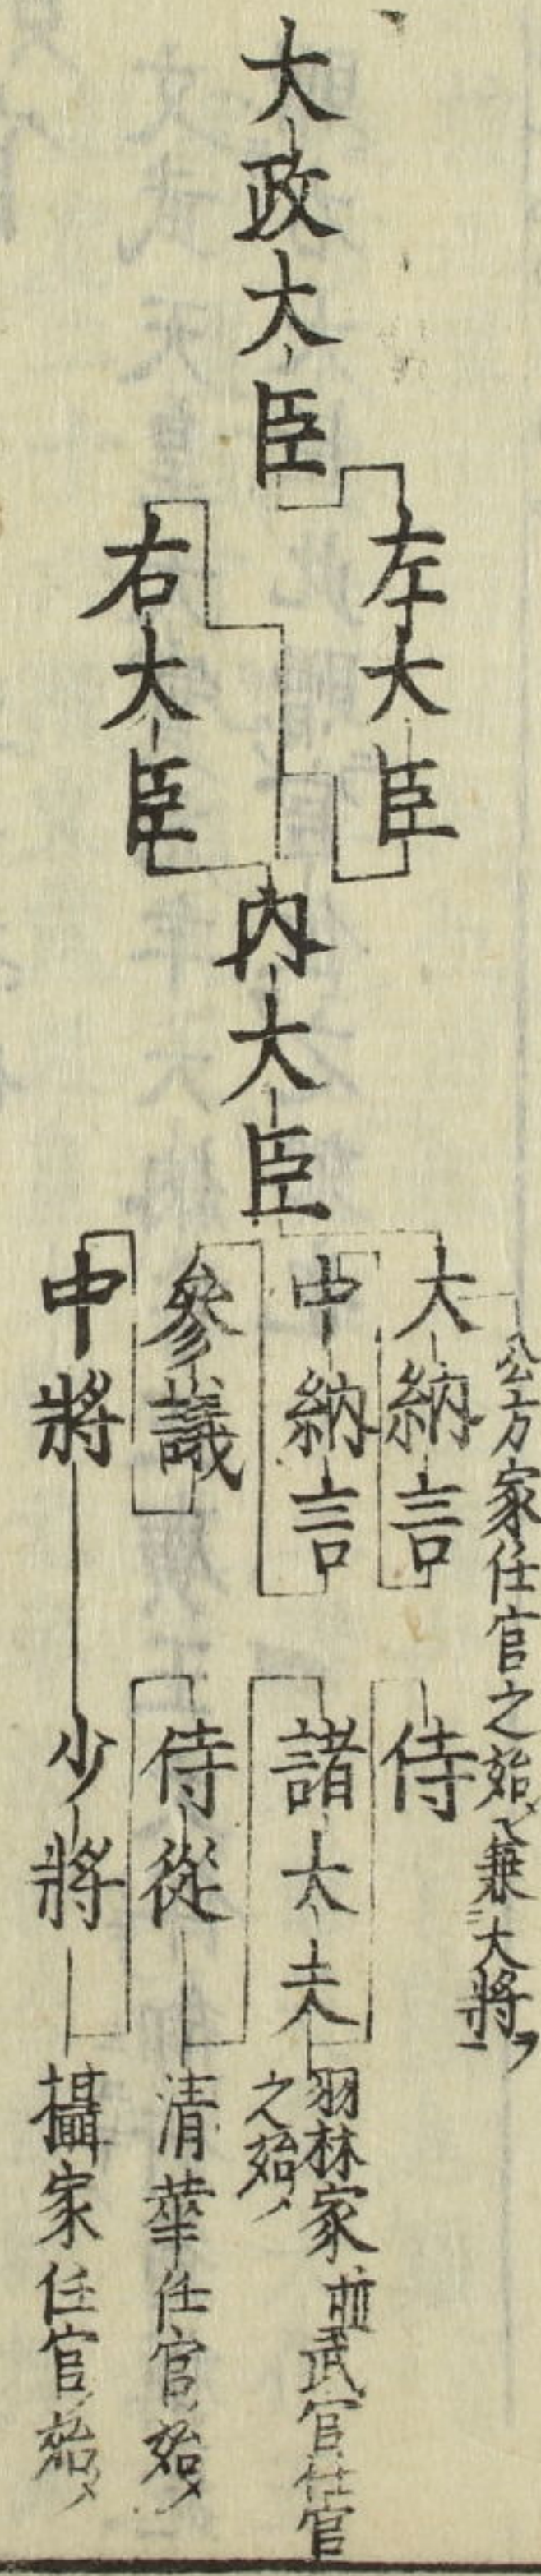 大政大臣
左大臣
右大臣
内大臣
公方家任官之始メ兼大將ヲ
大納言
中納言
參議
中將
侍
諸大夫
羽林家並武官任官
之始メ
侍從
清華任官ノ始メ
少將
攝家任官ノ始メ